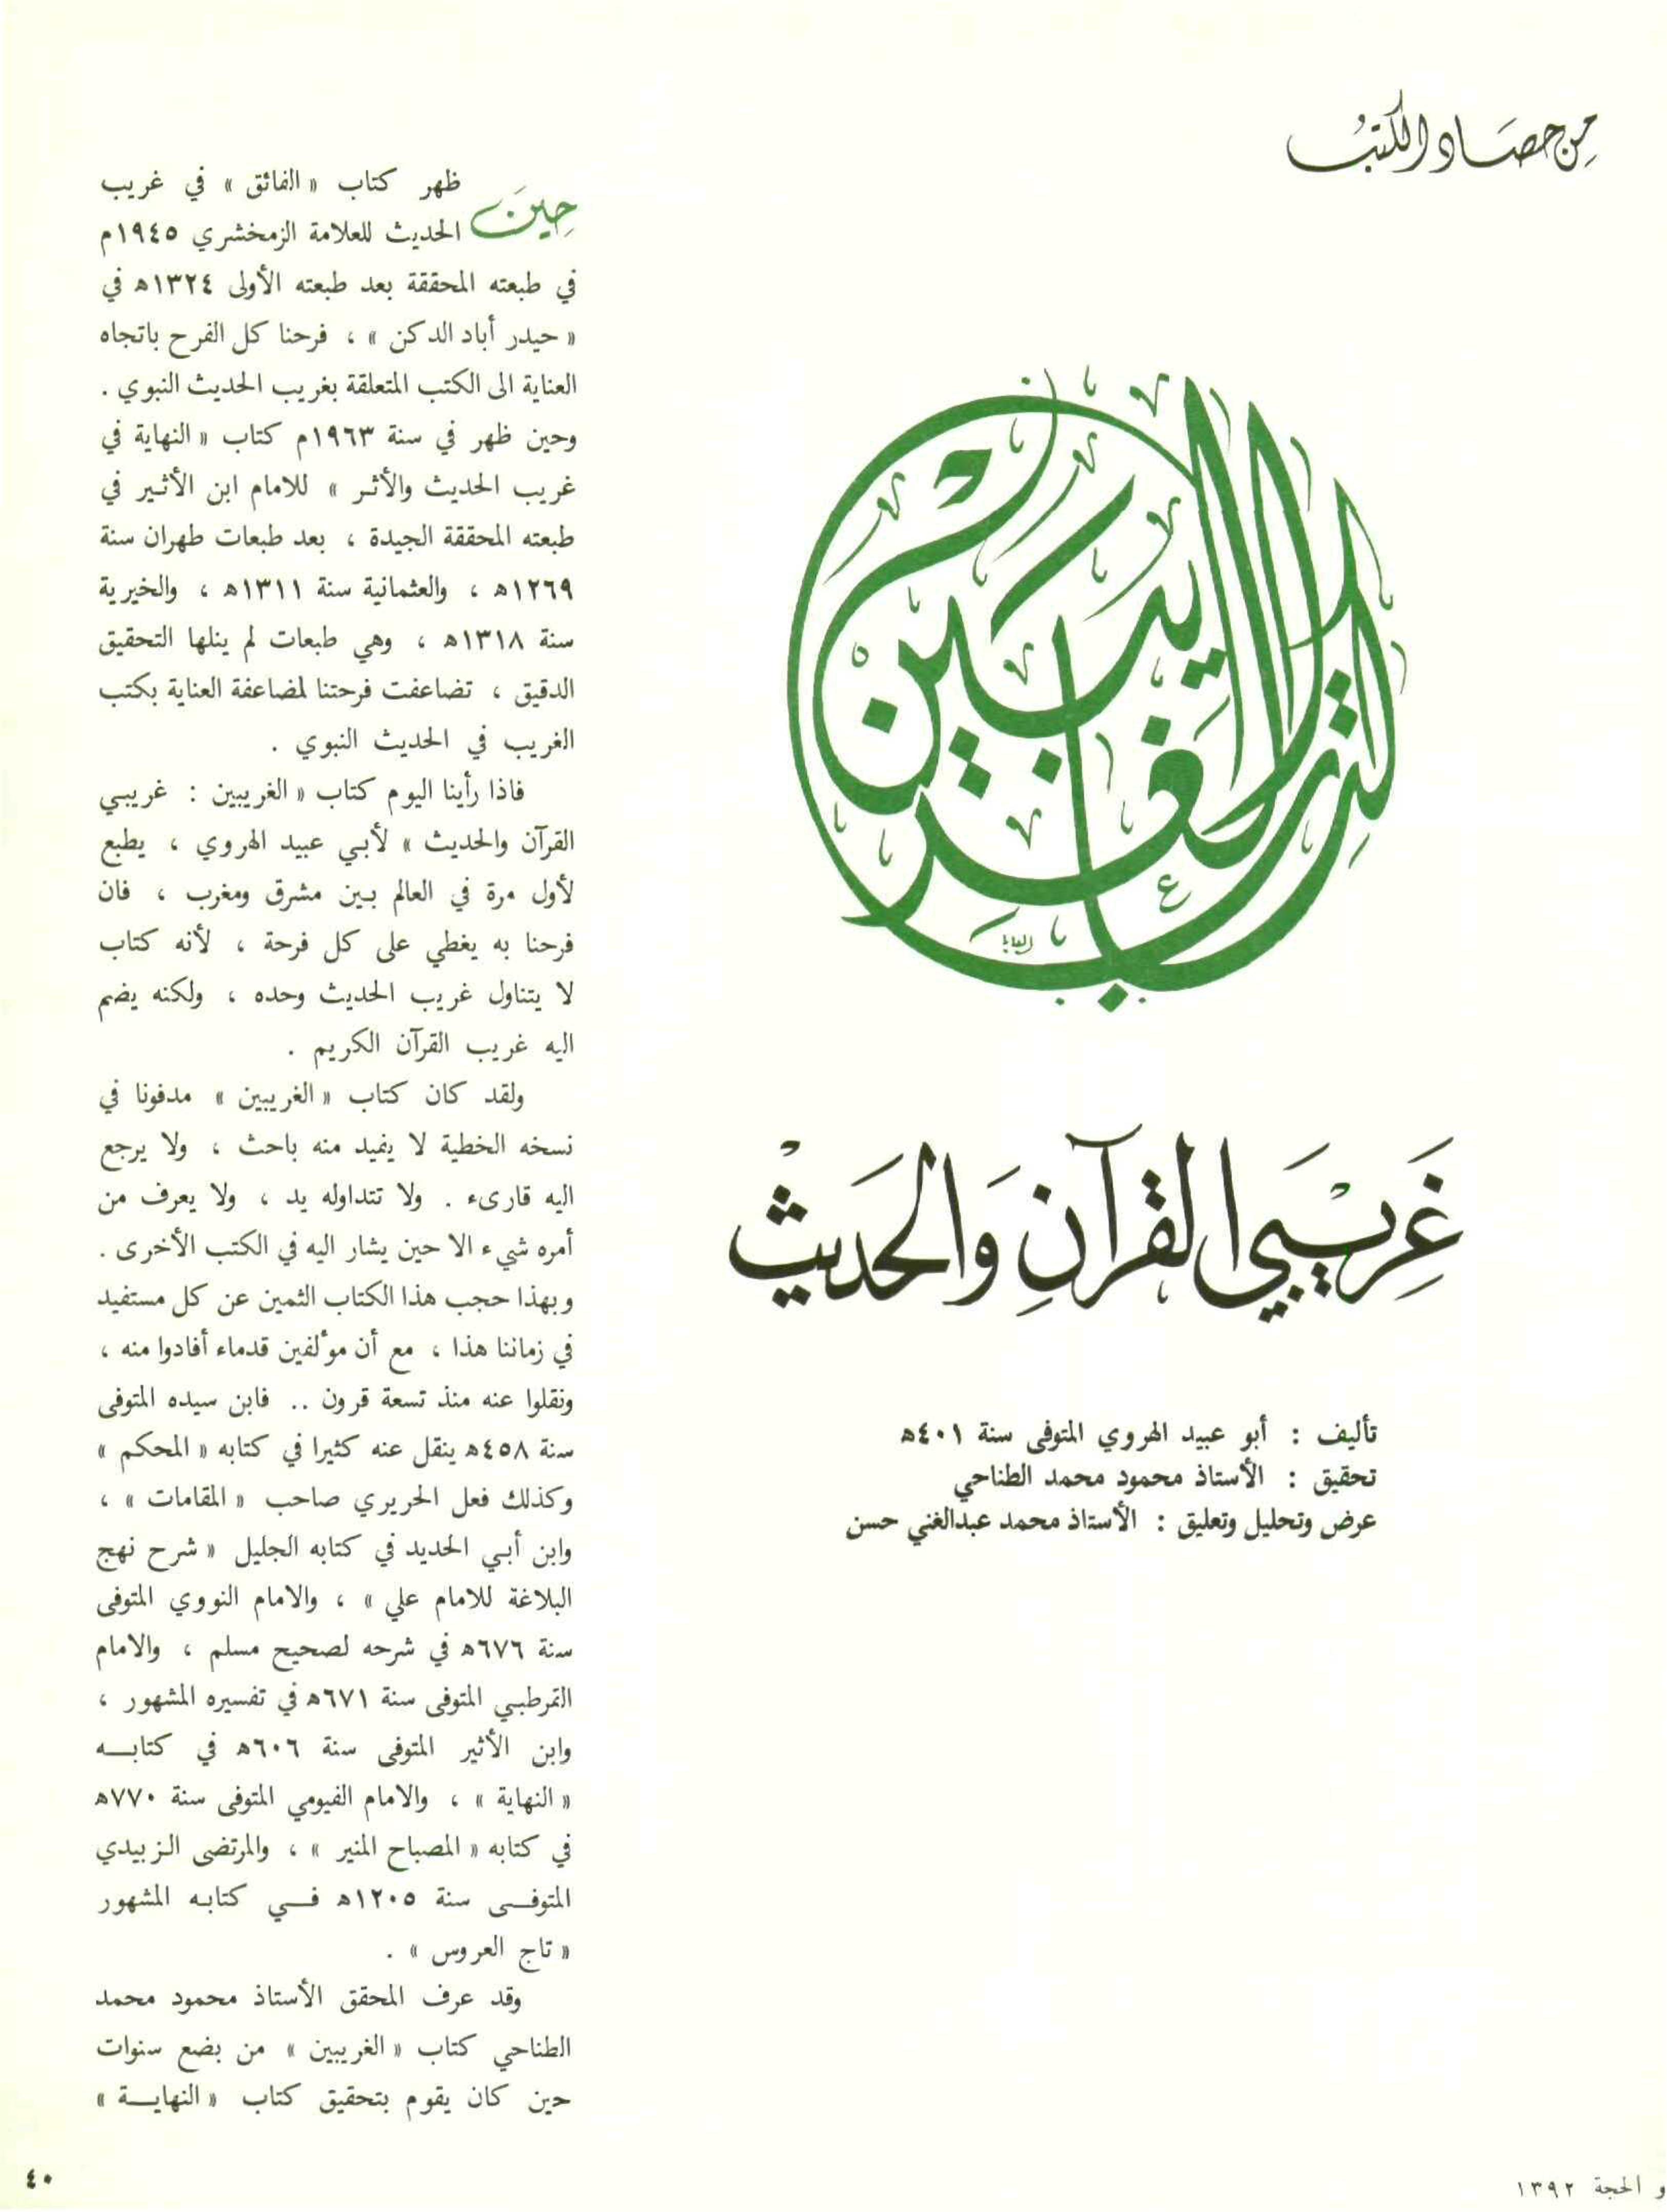 من حصاد الكتب
كتاب الغريبين
غَريبَيِ القرآنِ وَالحَديث
تأليف : أبو عبيد الهروي المتوفى سنة ٤٠١ه
تحقيق : الأستاذ محمود محمد الطناحي
عرض وتحليل وتعليق : الأستاذ محمد عبدالغني حسن
حِينَ ظهر كتاب « الفائق » في غريب
الحديث للعلامة الزمخشري ١٩٤٥م
في طبعته المحققة بعد طبعته الأولى ١٣٢٤ه في
« حيدر أباد الدكن » ، فرحنا كل الفرح باتجاه
العناية الى الكتب المتعلقة بغريب الحديث النبوي .
وحين ظهر في سنة ١٩٦٣م كتاب « النهاية في
غريب الحديث والأثر » للامام ابن الأثير في
طبعته المحققة الجيدة ، بعد طبعات طهران سنة
١٢٦٩ه ، والعثمانية سنة ١٣١١ه ، والخيرية
سنة ١٣١٨ه ، وهي طبعات لم ينلها التحقيق
الدقيق ، تضاعفت فرحتنا لمضاعفة العناية بكتب
الغريب في الحديث النبوي .
فاذا رأينا اليوم كتاب « الغريبين : غريبي
القرآن والحديث » لأبي عبيد الهروي ، يطبع
لأول مرة في العالم بين مشرق ومغرب ، فان
فرحنا به يغطي على كل فرحة ، لأنه كتاب
لا يتناول غريب الحديث وحده ، ولكنه يضم
اليه غريب القرآن الكريم .
ولقد كان كتاب « الغريبين » مدفونا في
نسخه الخطية لا يفيد منه باحث ، ولا يرجع
اليه قارىء . ولا تتداوله يد ، ولا يعرف من
أمره شيء الا حين يشار اليه في الكتب الأخرى .
وبهذا حجب هذا الكتاب الثمين عن كل مستفيد
في زماننا هذا ، مع أن مؤلفين قدماء أفادوا منه ،
ونقلوا عنه منذ تسعة قرون .. فابن سيده المتوفى
سنة ٤٥٨ه ينقل عنه كثيرا في كتابه « المحكم »
وكذلك فعل الحريري صاحب « المقامات » ،
وابن أبي الحديد في كتابه الجليل « شرح نهج
البلاغة للامام علي » ، والامام النووي المتوفى
سنة ٦٧٦ه في شرحه لصحيح مسلم ، والامام
القرطبي المتوفى سنة ٦٧١ه في تفسيره المشهور ،
وابن الأثير المتوفى سنة ٦٠٦ه في كتابـــه
« النهاية » ، والامام الفيومي المتوفى سنة ٧٧٠ه
في كتابه « المصباح المنير » ، والمرتضى الزبيدي
المتوفــى سنة ١٢٠٥ه فــي كتابه المشهور
« تاج العروس » .
وقد عرف المحقق الأستاذ محمود محمد
الطناحي كتاب « الغريبين » من بضع سنوات
حين كان يقوم بتحقيق كتاب « النهايــة »
و الحجة ١٣٩٢
٤٠